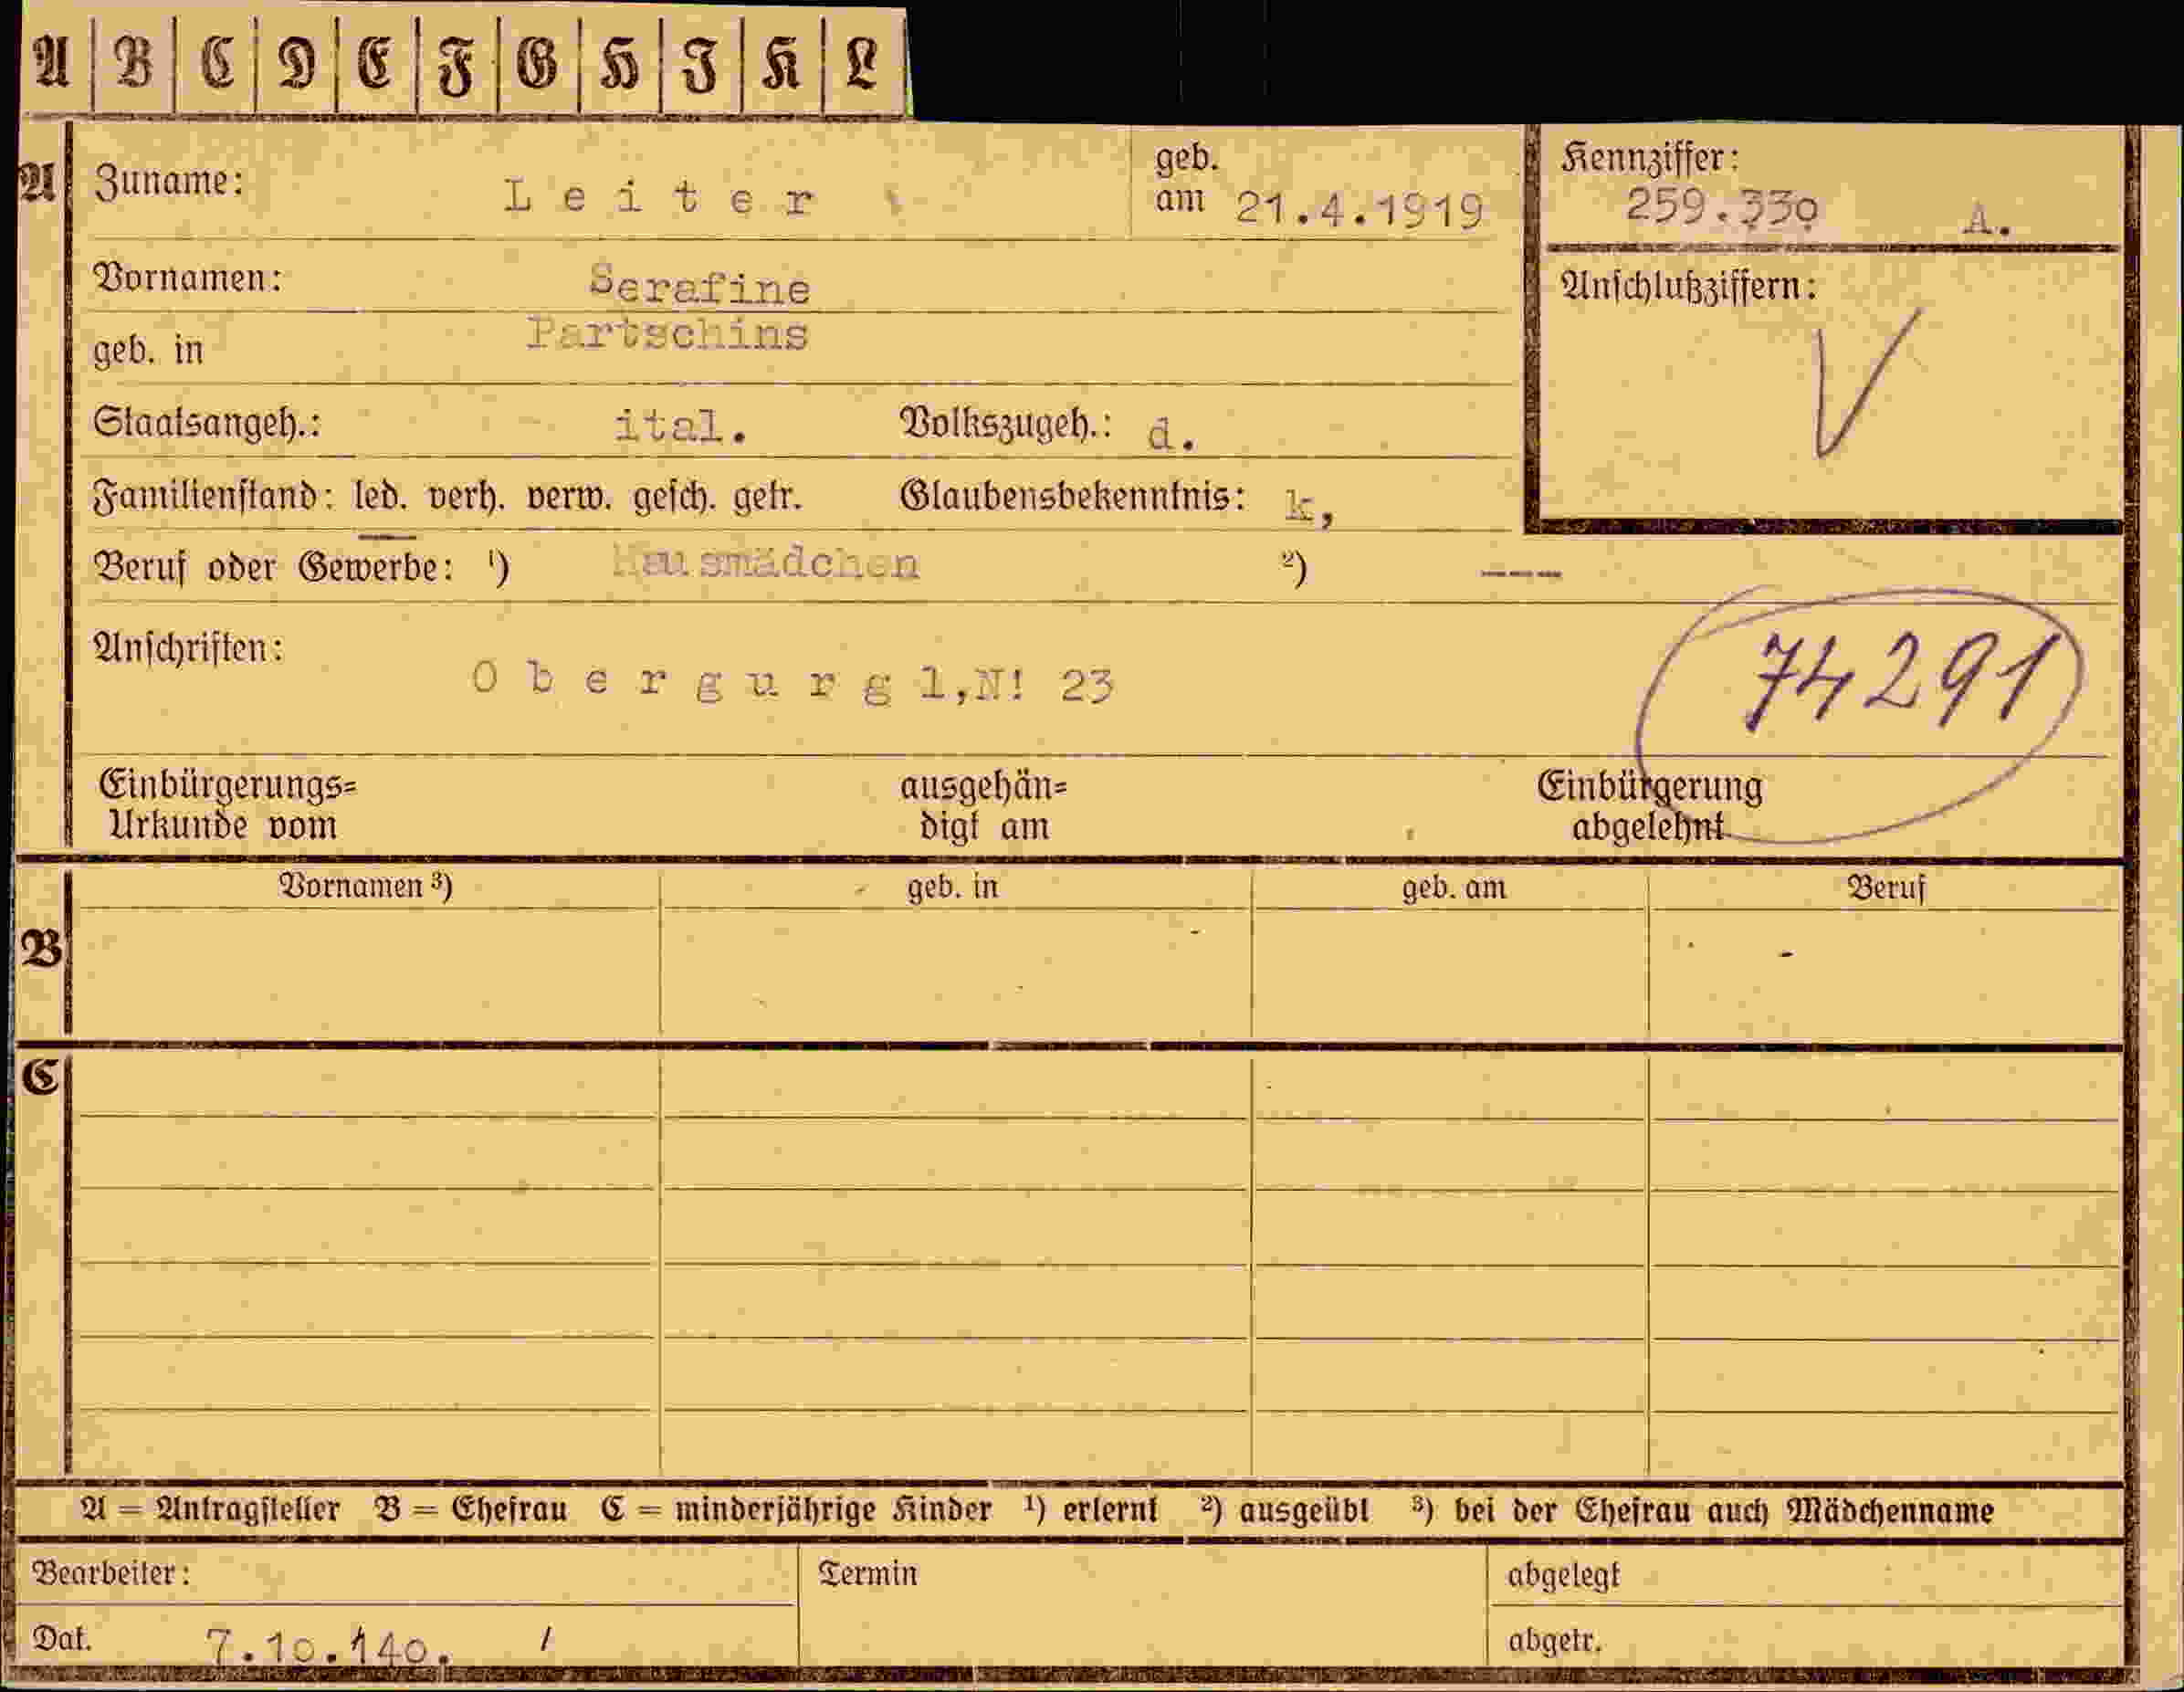 A B C D E F G H I K L
A Zuname: Leiter geb. am 21.4.1919 Kennziffer: 259.330 A.
Vornamen: Serafine Anschlußziffern:
geb. in Partschins
Staatsangeh.: ital. Volkszugeh.: d.
Familienstand: led. verh. verw. gesch. getr. Glaubensbekenntnis: k,
Beruf oder Gewerbe: ¹) Hausmädchen ²) ----
Anschriften: Obergurgl,N! 23 74291
Einbürgerungs= ausgehän= Einbürgerung
Urkunde vom digt am abgelehnt
Vornamen ³) geb. in geb. am Beruf
B
C
A = Antragsteller B = Ehefrau C = minderjährige Kinder ¹) erlernt ²) ausgeübt ³) bei der Ehefrau auch Mädchenname
Bearbeiter: Termin abgelegt
Dat. 7.10.140. / abgetr.